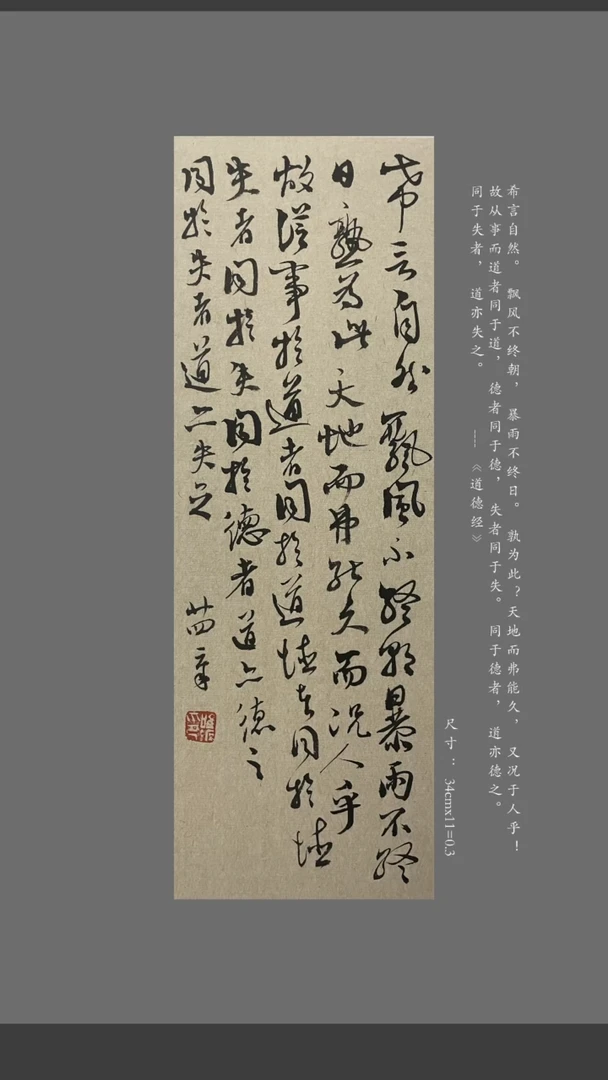 希言自然。 飘风不终朝， 暴雨不终日。 孰为此？天地而弗能久， 又况于人乎！
故从事而道者同于道， 德者同于德， 失者同于失。 同于德者， 道亦德之。
同于失者， 道亦失之。 ——《道德经》
尺寸：34cmx11=0.3
希言自然飄風不終朝暴雨不終
日孰為此天地而弗能久而况人乎
故從事於道者同於道德者同於德
失者同於失同於德者道亦德之
同於失者道亦失之
廿四章